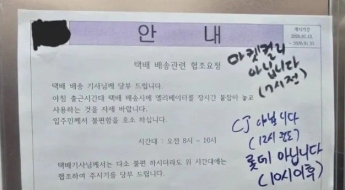 안 내
게시기간
택배 배송관련 협조요청
택배 배송 기사님께 당부 드립니다.
아침 출근시간대 택배 배송시에 엘리베이터를 장시간 붙잡아 놓고
사용하는 것을 자제 바랍니다.
입주민께서 불편함을 호소 하십니다.
시간대 : 오전 8시 ~ 10시
택배기사님께서는 다소 불편 하시더라도 위 시간대에는
협조하여 주시기를 당부 드립니다.
마켓컬리
아닙니다
(7시전)
CJ 아닙니다
(12시 완료)
롯데 아닙니다
(10시이후)